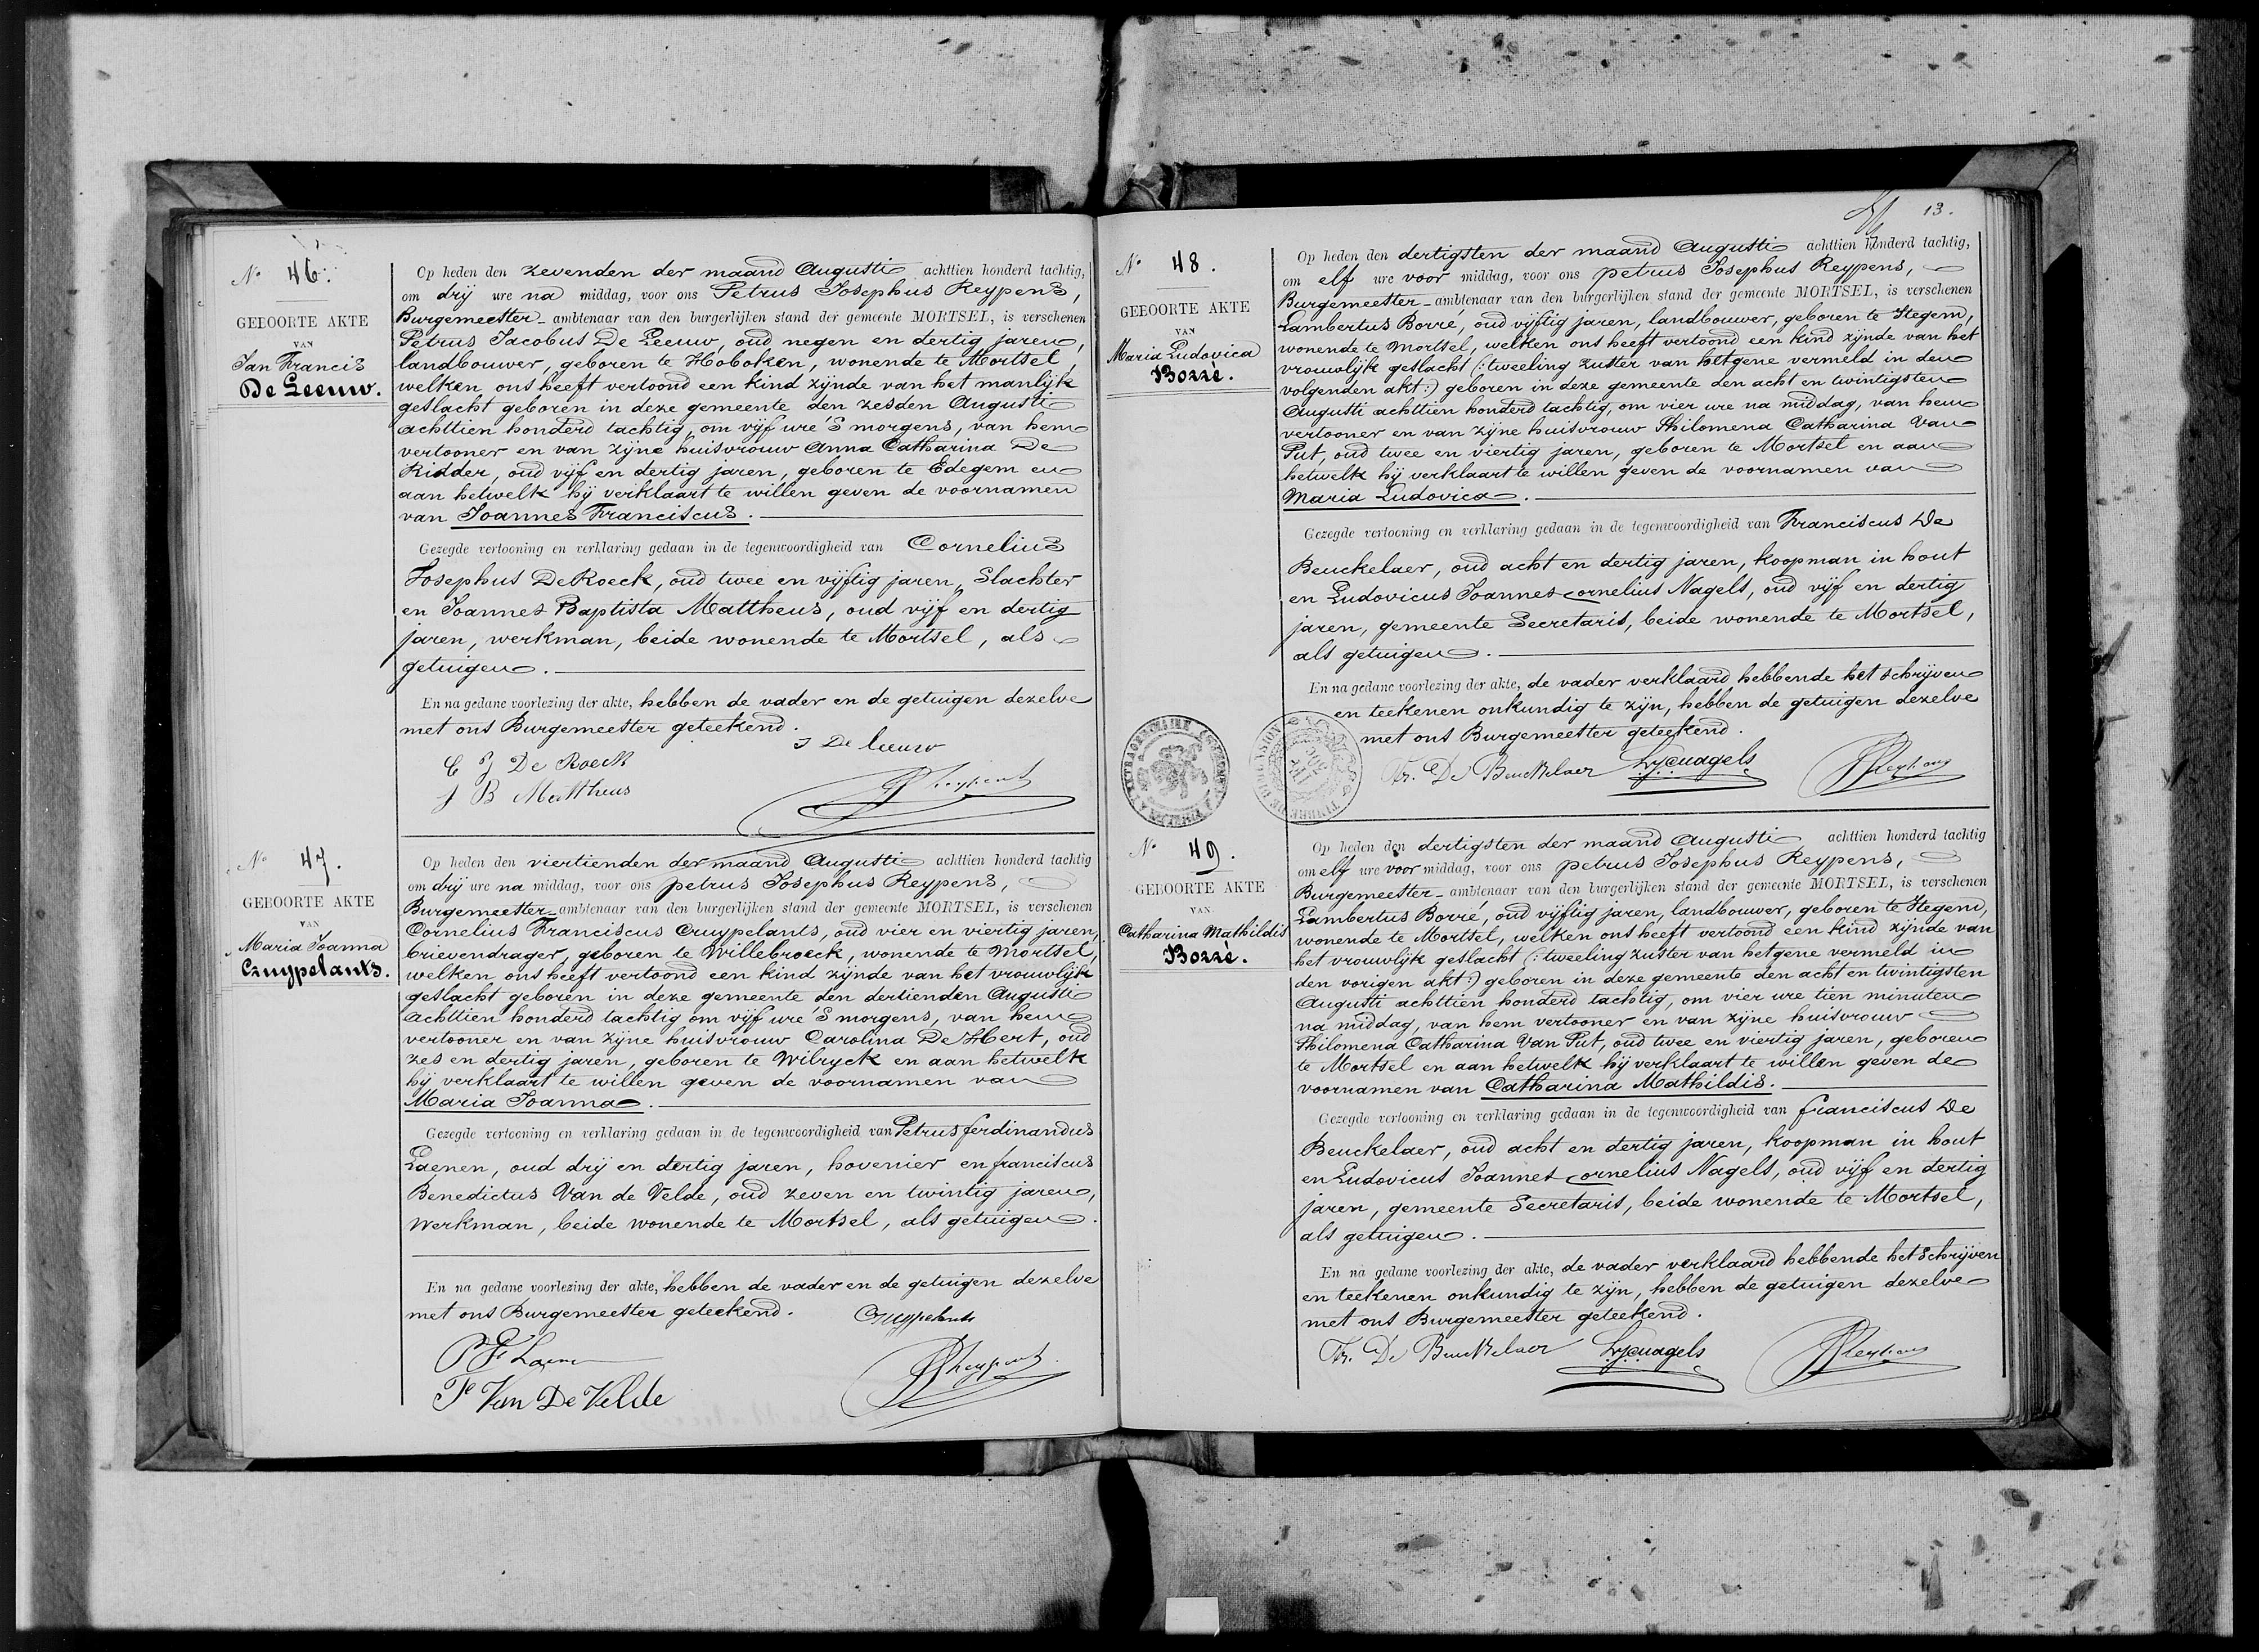 N° 46.
GEBOORTE AKTE
VAN
Jan Francis
De Leeuw.
Op heden den zevenden der maand Augusti achttien honderd tachtig,
om drij ure na middag, voor ons Petrus Josephus Reypens,
Burgemeester ambtenaar van den burgerlijken stand der gemeente MORTSEL, is verschenen
Petrus Jacobus De Leeuw, oud negen en dertig jaren,
landbouwer, geboren te Hoboken, wonende te Mortsel,
welken ons heeft vertoond een kind zijnde van het manlijk
geslacht geboren in deze gemeente den zesden Augusti
achttien honderd tachtig, om vijf ure 's morgens, van hem
vertooner en van zijne huisvrouw Anna Catharina De
Ridder, oud vijf en dertig jaren, geboren te Edegem en
aan hetwelk hij verklaart te willen geven de voornamen
van Joannes Franciscus.
Gezegde vertooning en verklaring gedaan in de tegenwoordigheid van Cornelius
Josephus De Roeck, oud twee en vijftig jaren, Slachter
en Joannes Baptista Mattheus, oud vijf en dertig
jaren, werkman, beide wonende te Mortsel, als
getuigen.
En na gedane voorlezing der akte, hebben de vader en de getuigen dezelve
met ons Burgemeester geteekend.
J De Leeuw
C J De Roeck
J B Mattheus
N° 47.
GEBOORTE AKTE
VAN
Maria Joanna
Cruypelants.
Op heden den viertienden der maand Augusti achttien honderd tachtig
om drij ure na middag, voor ons petrus Josephus Reypens,
Burgemeester ambtenaar van den burgerlijken stand der gemeente MORTSEL, is verschenen
Cornelius Franciscus Cruypelants, oud vier en viertig jaren,
brievendrager, geboren te Willebroeck, wonende te Mortsel,
welken ons heeft vertoond een kind zijnde van het vrouwlijk
geslacht geboren in deze gemeente den dertienden Augusti
achttien honderd tachtig om vijf ure 's morgens, van hem
vertooner en van zijne huisvrouw Carolina De Hert, oud
zes en dertig jaren, geboren te Wilryck en aan hetwelk
hij verklaart te willen geven de voornamen van
Maria Joanna.
Gezegde vertooning en verklaring gedaan in de tegenwoordigheid van Petrus ferdinandus
Laenen, oud drij en dertig jaren, hovenier en franciscus
Benedictus Van de Velde, oud zeven en twintig jaren,
werkman, beide wonende te Mortsel, als getuigen.
En na gedane voorlezing der akte, hebben de vader en de getuigen dezelve
met ons Burgemeester geteekend.
Cruypelants
P F Laenen
F Van De Velde
13.
N° 48.
GEBOORTE AKTE
VAN
Maria Ludovica
Borré.
Op heden den dertigsten der maand Augusti achttien honderd tachtig,
om elf ure voor middag, voor ons petrus Josephus Reypens,
Burgemeester ambtenaar van den burgerlijken stand der gemeente MORTSEL, is verschenen
Lambertus Borré, oud vijftig jaren, landbouwer, geboren te Itegem,
wonende te Mortsel, welken ons heeft vertoond een kind zijnde van het
vrouwlijk geslacht (: tweeling zuster van hetgene vermeld in den
volgenden akt :) geboren in deze gemeente den acht en twintigsten
Augusti achttien honderd tachtig, om vier ure na middag, van hem
vertooner en van zijne huisvrouw Philomena Catharina Van
Put, oud twee en viertig jaren, geboren te Mortsel en aan
hetwelk hij verklaart te willen geven de voornamen van
Maria Ludovica.
Gezegde vertooning en verklaring gedaan in de tegenwoordigheid van Franciscus De
Beuckelaer, oud acht en dertig jaren, koopman in hout
en Ludovicus Joannes Cornelius Nagels, oud vijf en dertig
jaren, gemeente Secretaris, beide wonende te Mortsel,
als getuigen.
En na gedane voorlezing der akte, de vader verklaard hebbende het schrijven
en teekenen onkundig te zijn, hebben de getuigen dezelve
met ons Burgemeester geteekend.
Fr. De Beuckelaer
N° 49.
GEBOORTE AKTE
VAN
Catharina Mathildis
Borré.
Op heden den dertigsten der maand Augusti achttien honderd tachtig
om elf ure voor middag, voor ons petrus Josephus Reypens,
Burgemeester ambtenaar van den burgerlijken stand der gemeente MORTSEL, is verschenen
Lambertus Borré, oud vijftig jaren, landbouwer, geboren te Itegem,
wonende te Mortsel, welken ons heeft vertoond een kind zijnde van
het vrouwlijk geslacht (: tweeling zuster van hetgene vermeld in
den vorigen akt :) geboren in deze gemeente den acht en twintigsten
Augusti achttien honderd tachtig, om vier ure tien minuten
na middag, van hem vertooner en van zijne huisvrouw
Philomena Catharina Van Put, oud twee en viertig jaren, geboren
te Mortsel en aan hetwelk hij verklaart te willen geven de
voornamen van Catharina Mathildis.
Gezegde vertooning en verklaring gedaan in de tegenwoordigheid van franciscus De
Beuckelaer, oud acht en dertig jaren, koopman in hout
en Ludovicus Joannes Cornelius Nagels, oud vijf en dertig
jaren, gemeente Secretaris, beide wonende te Mortsel,
als getuigen.
En na gedane voorlezing der akte, de vader verklaard hebbende het Schrijven
en teekenen onkundig te zijn, hebben de getuigen dezelve
met ons Burgemeester geteekend.
Fr. De Beuckelaer